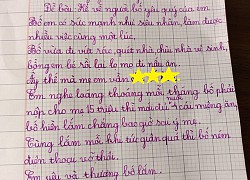 Đề bài: Kể về người bố yêu quý của em
Bố em có sức mạnh như siêu nhân, làm được
nhiều việc cùng một lúc.
Bố vừa đi vứt rác, quét nhà, chùi nhà vệ sinh,
bồng em bé rồi lại lo mọ đi nấu ăn.
Ấy thế mà mẹ em vẫn
Em nghe loáng thoáng mỗi tháng bố phải
nộp cho mẹ 15 triệu thì mới được 1 câu miệng ăn,
bố hiền lắm chẳng bao giờ sai ý mẹ.
Cùng lắm mỗi khi tức quá thì bố ném
điện thoại vỡ thôi.
Em yêu và thương bố lắm.